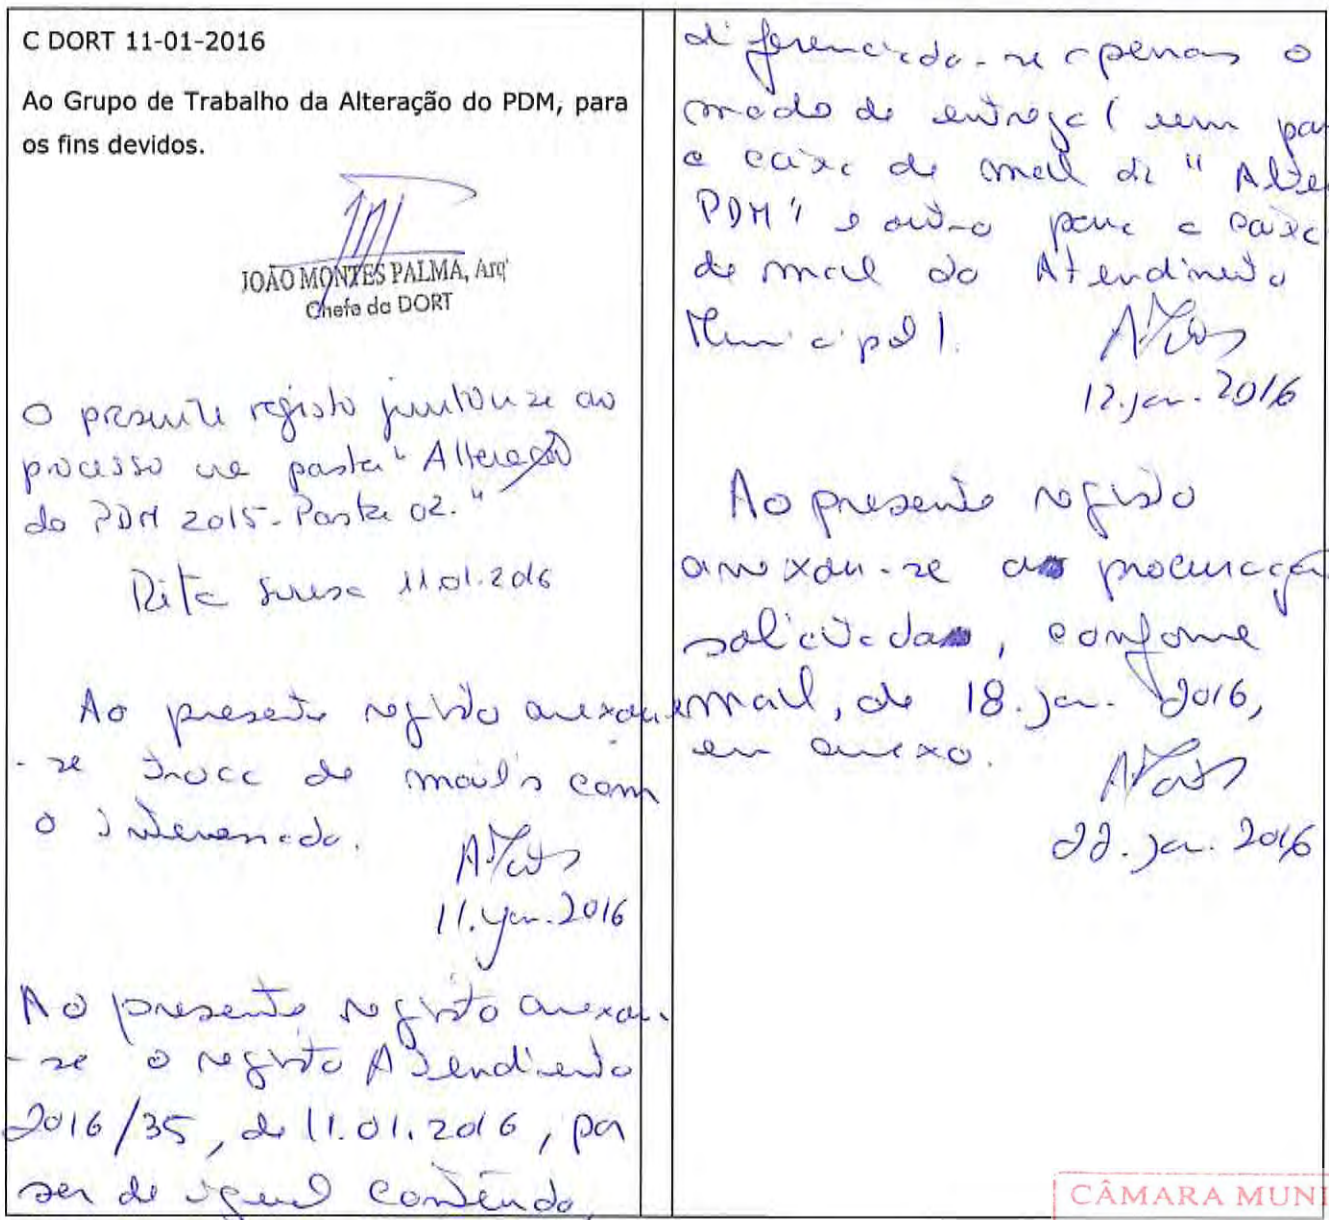 C DORT 11-01-2016
Ao Grupo de Trabalho da Alteração do PDM, para
os fins devidos.
JOÃO MONTES PALMA, Arqº
Chefe da DORT
O presente registo juntou-se ao
processo na pasta "Alteração
do PDM 2015 - Pasta 02."
Rita 11.01.2016
Ao presente registo anexou-
-se troca de mail's com
o interessado.
11.jan.2016
Ao presente registo anexou-
-se o registo Atendimento
2016/35, de 11.01.2016, por
ser de igual conteúdo,
diferenciando-se apenas o
modo de entrega (um par
a caixa de mail da "Alte
PDM" e outro para a caixa
de mail do Atendimento
Municipal).
12.jan.2016
Ao presente registo
anexou-se as procuraçõ
solicitadas, conforme
email, de 18.jan.2016,
em anexo.
22.jan.2016
CÂMARA MUNI